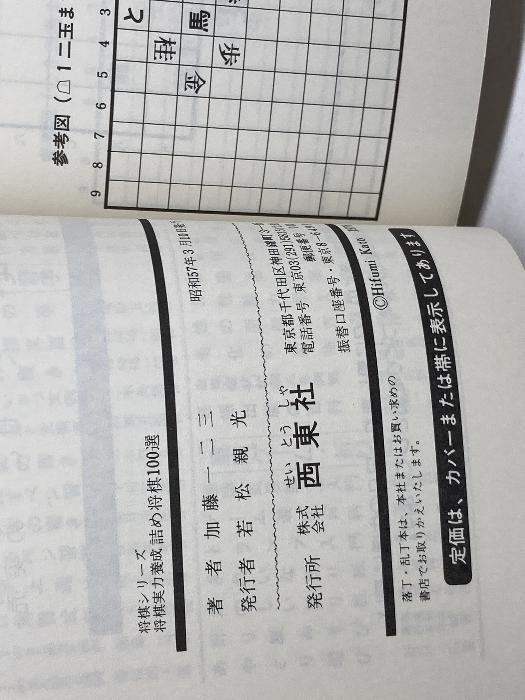 参考図（⌂１二玉ま
9 8 7 6 5 4 3
と
桂
馬
金
歩
将棋シリーズ
将棋実力養成 詰め将棋100選
昭和57年3月10日
著者 加藤一二三
発行者 若松親光
発行所 株式会社 西東社
せい とう しゃ
東京都千代田区神田錦町
電話番号 東京03(291)
郵便番号
振替口座番号・東京8-
©Hifumi Kato
落丁・乱丁本は、本社またはお買い求めの
書店でお取りかえいたします。
定価は、カバーまたは帯に表示してあります